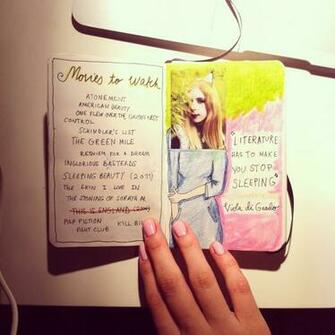 Movies to Watch
ATONEMENT
AMERICAN BEAUTY
ONE FLEW OVER THE CUCKOO'S NEST
CONTROL
SCHINDLER'S LIST
THE GREEN MILE
REQUIEM FOR A DREAM
INGLORIOUS BASTERDS
SLEEPING BEAUTY (2011)
THE SKIN I LIVE IN
THE STONING OF SORAYA M.
THIS IS ENGLAND (2006)
PULP FICTION KILL BILL
FIGHT CLUB
"LITERATURE
HAS TO MAKE
YOU STOP
SLEEPING"
Viola di Grado